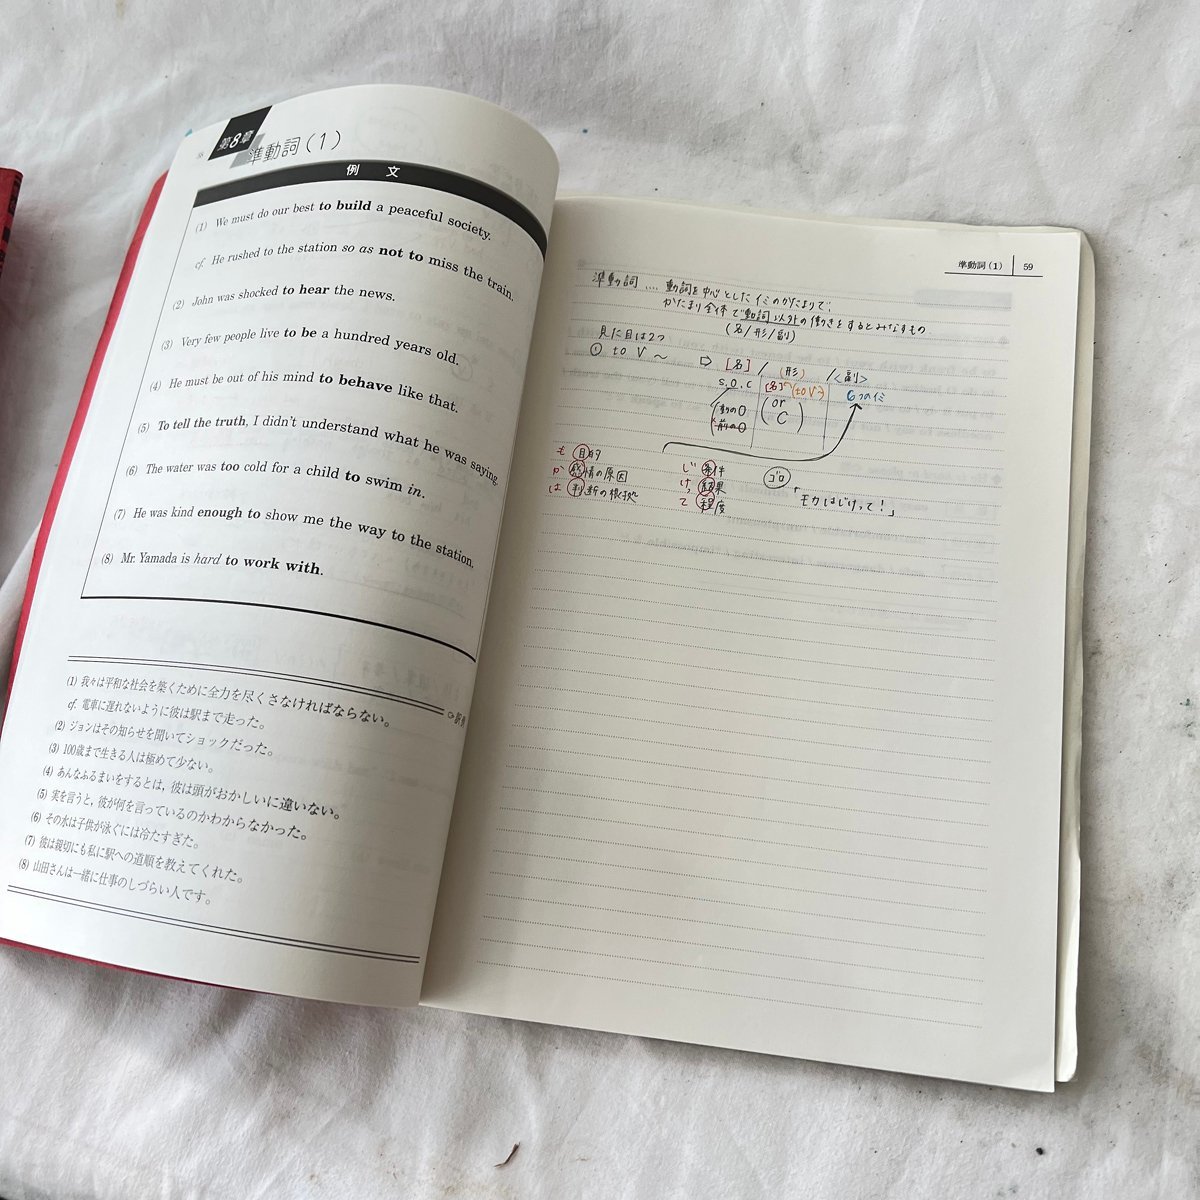 58
第8章
準動詞(1)
例 文
(1) We must do our best to build a peaceful society.
cf. He rushed to the station so as not to miss the train.
(2) John was shocked to hear the news.
(3) Very few people live to be a hundred years old.
(4) He must be out of his mind to behave like that.
(5) To tell the truth, I didn't understand what he was saying.
(6) The water was too cold for a child to swim in.
(7) He was kind enough to show me the way to the station.
(8) Mr. Yamada is hard to work with.
(1) 我々は平和な社会を築くために全力を尽くさなければならない。
cf. 電車に遅れないように彼は駅まで走った。
(2) ジョンはその知らせを聞いてショックだった。
(3) 100歳まで生きる人は極めて少ない。
(4) あんなふるまいをするとは, 彼は頭がおかしいに違いない。
(5) 実を言うと, 彼が何を言っているのかわからなかった。
(6) その水は子供が泳ぐには冷たすぎた。
(7) 彼は親切にも私に駅への道順を教えてくれた。
(8) 山田さんは一緒に仕事のしづらい人です。
準動詞(1) 59
準動詞 .... 動詞を中心としたイミのかたまりで、
かたまり全体で動詞以外の働きをするとみなすもの
(名/形/副)
見た目は2つ
① to V ~ ⇨ [名] / (形) / <副>
S.O.C [名]^(to V~) 6つのイミ
動のO
前のO
(or C)
も 目的
か 感情の原因
は 判断の根拠
じ 条件
け 結果
て 程度
ゴロ
「モカはじけって!」